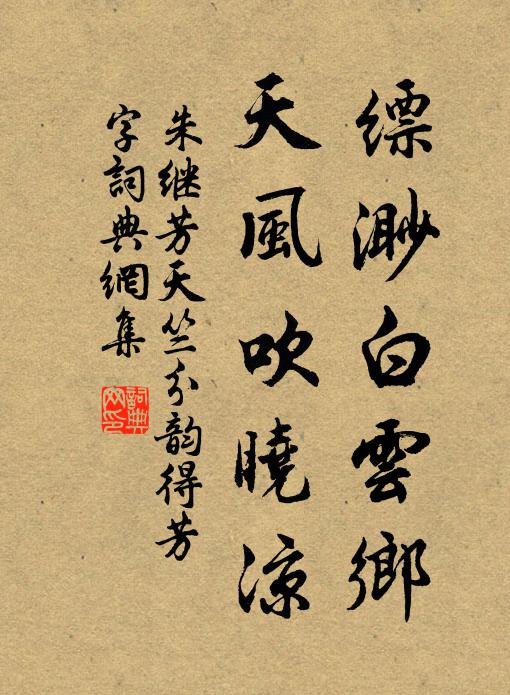 缥渺白雲鄉
天風吹曉凉
朱继芳天竺分韵得芳
字詞典網集
詞典網印